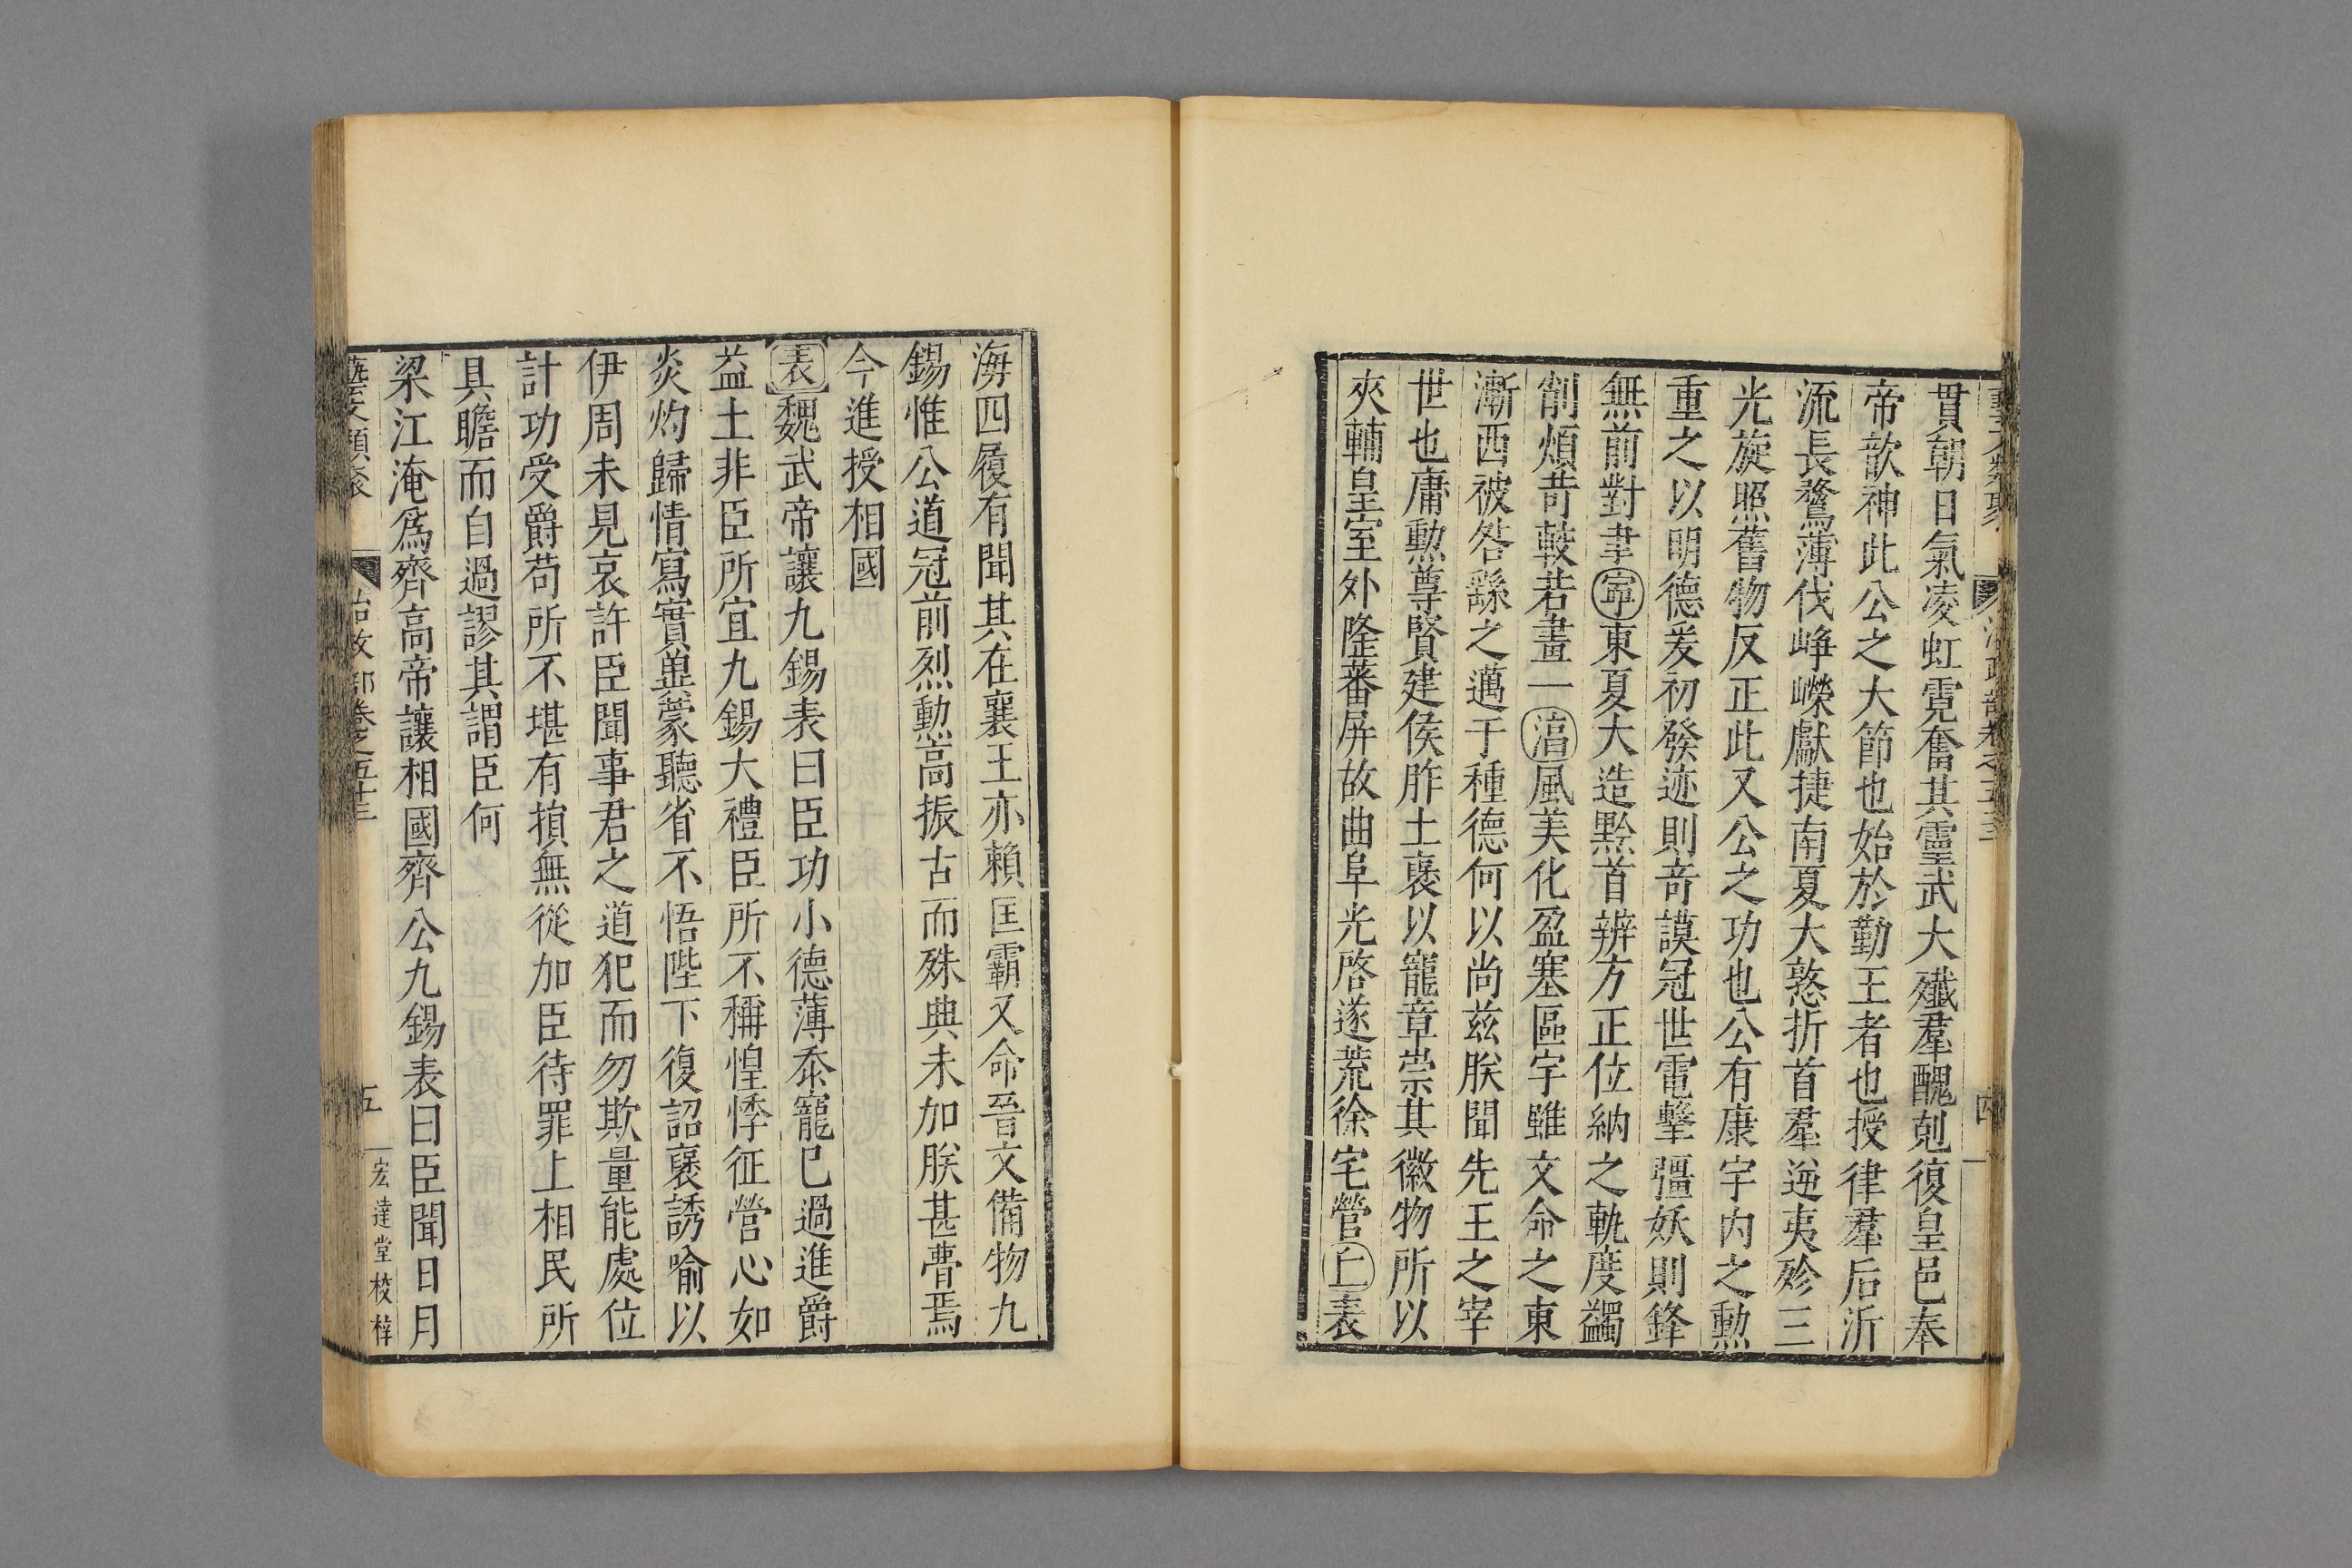 貫朝日氣凌虹霓奮其靈武大殱羣醜剋復皇邑奉
帝歆神此公之大節也始於勤王者也授律羣后泝
流長鶩薄伐崢嶸獻捷南夏大憝折首羣逆夷殄三
光旋照舊物反正此又公之功也公有康宇内之勳
重之以明德爰初發迹則竒謨冠世電擊彊妖則鋒
無前對聿寧東夏大造黔首辨方正位納之軌度蠲
削煩苛較若畫一滔風美化盈塞區宇雖文命之東
漸西被咎繇之邁于種德何以尚兹朕聞先王之宰
世也庸勲尊賢建侯胙土襃以寵章崇其徽物所以
夾輔皇室外隆蕃屏故曲阜光啓遂荒徐宅營上表
海四履有聞其在襄王亦賴匡霸又命晉文備物九
錫惟公道冠前烈勳高振古而殊典未加朕甚瞢焉
今進授相國
表魏武帝讓九錫表曰臣功小德薄忝寵已過進爵
益土非臣所宜九錫大禮臣所不稱惶悸征營心如
炎灼歸情寫實蒙聽省不悟陛下復詔襃誘喻以
伊周未見哀許臣聞事君之道犯而勿欺量能處位
計功受爵苟所不堪有損無從加臣待罪上相民所
具瞻而自過謬其謂臣何
梁江淹爲齊高帝讓相國齊公九錫表曰臣聞日月
藝文類聚
治政部卷之五十三
五
宏達堂校梓